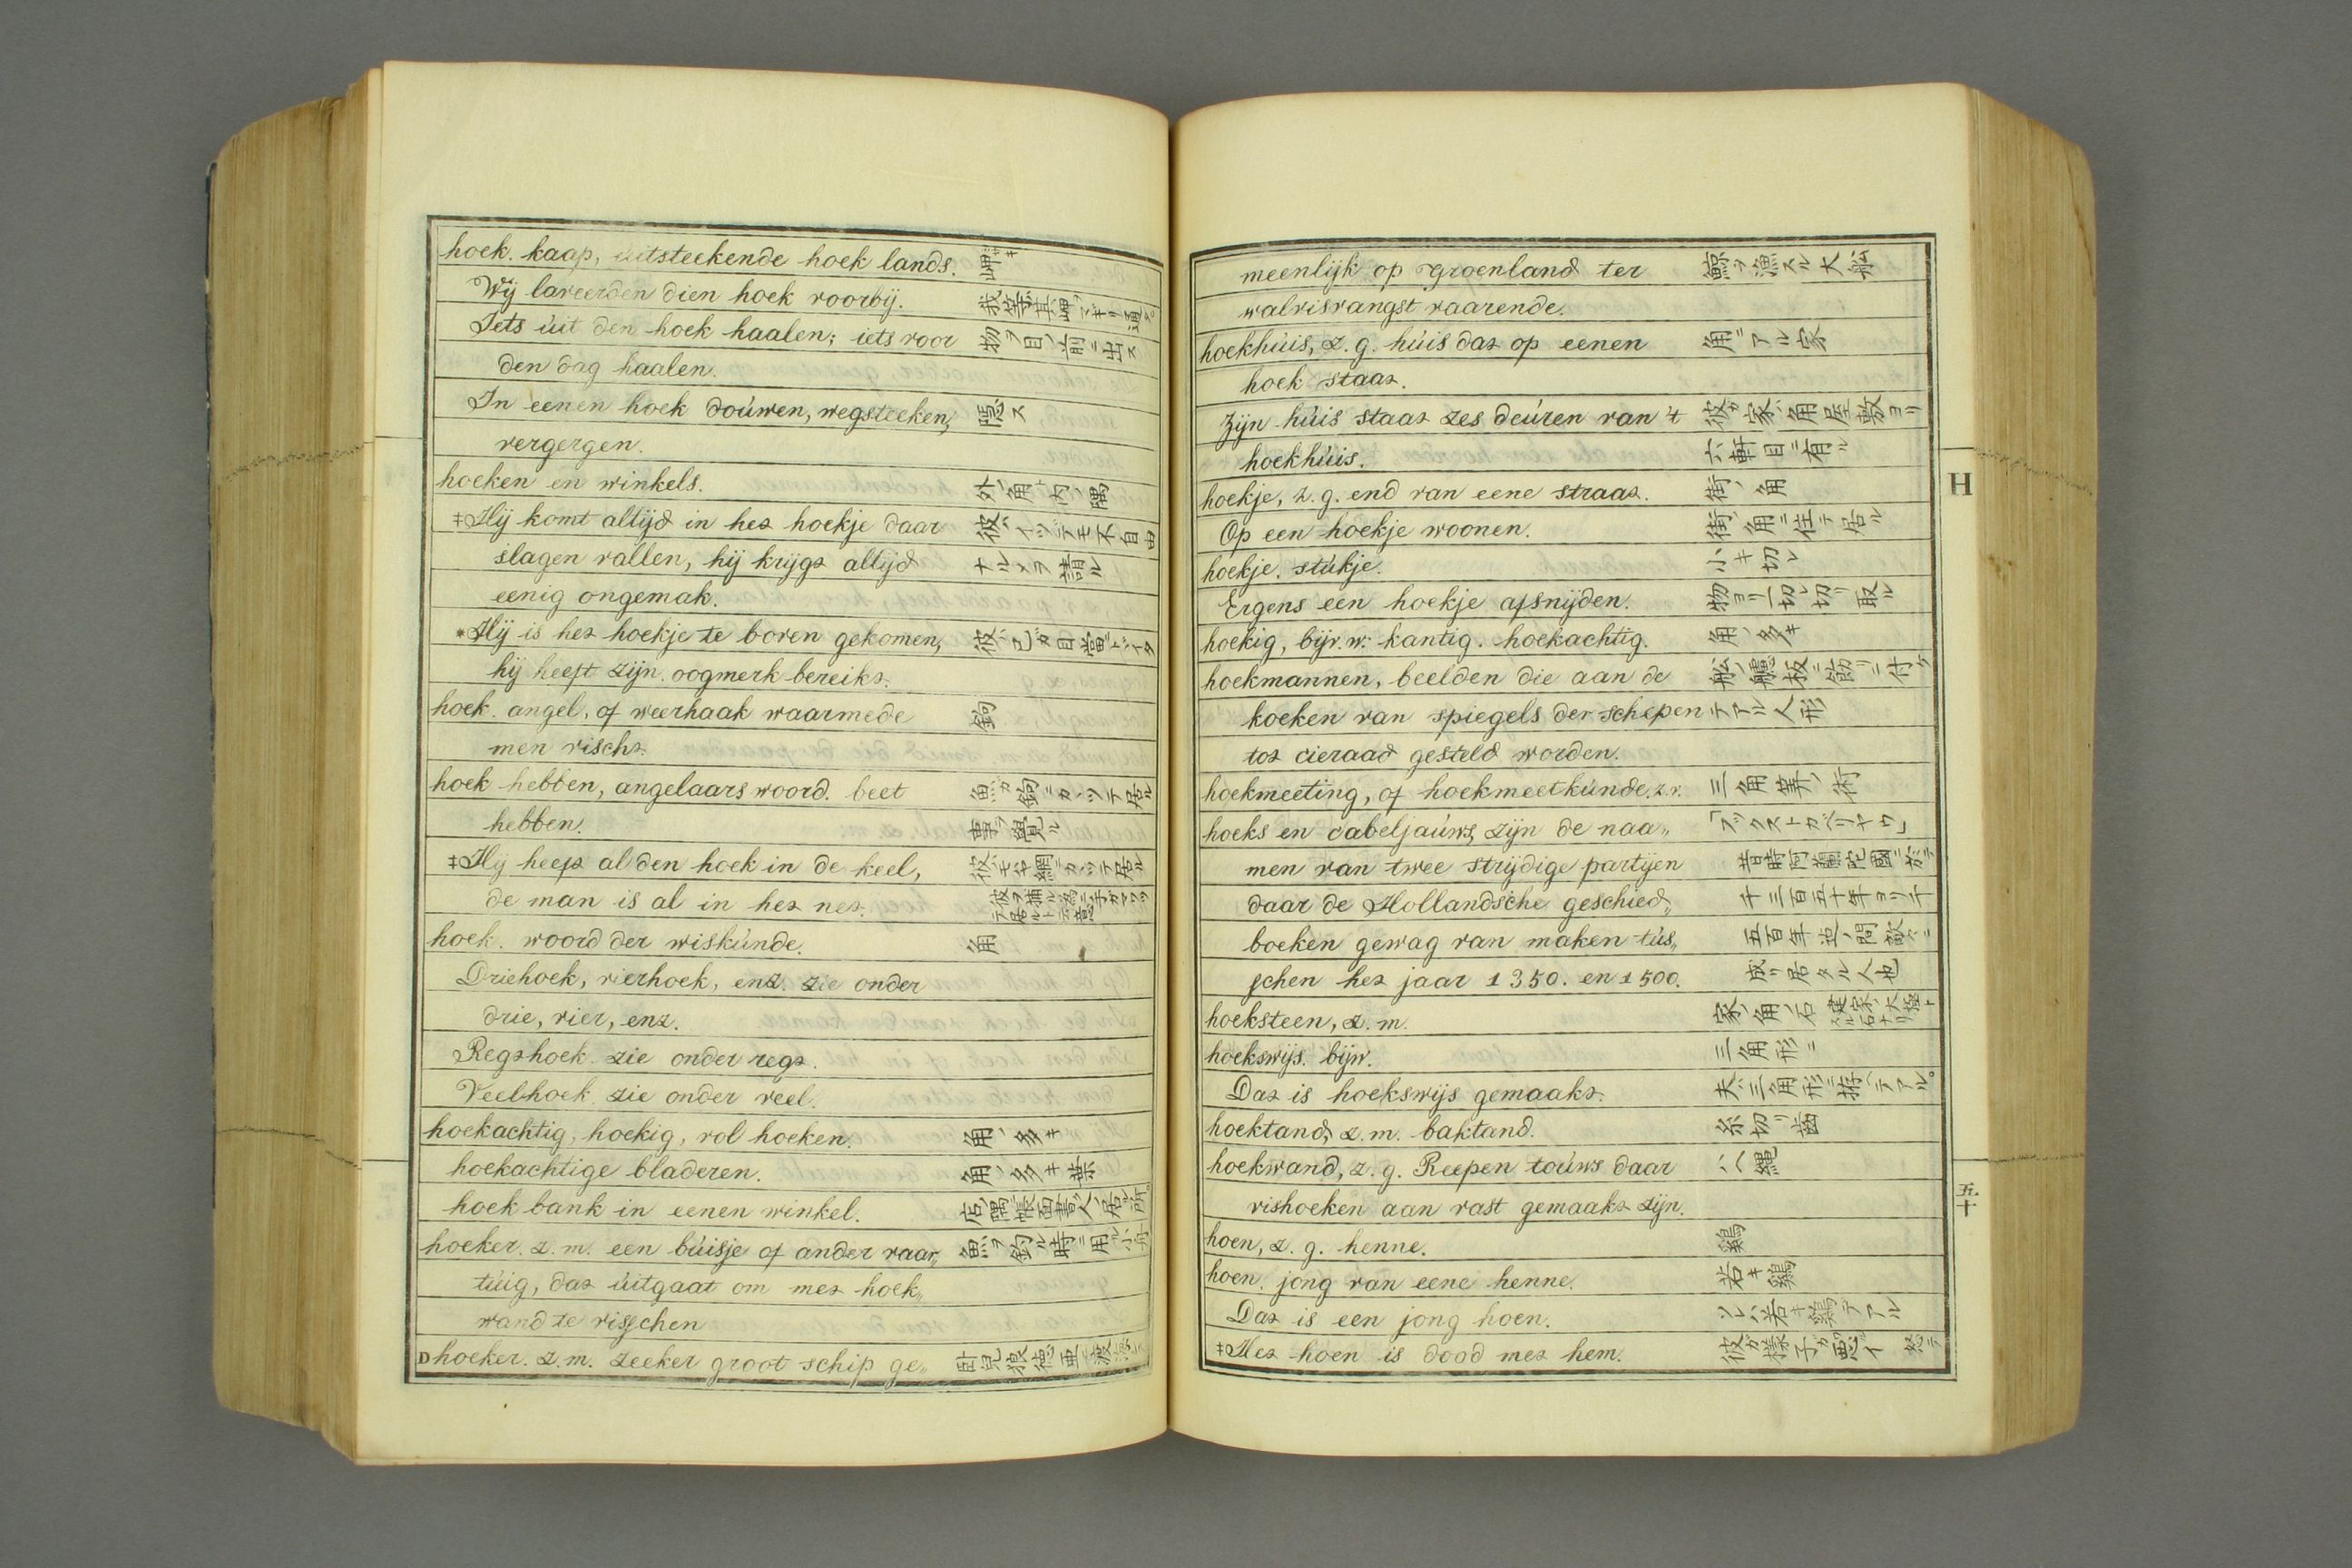 hoek. kaap, uitsteekende hoek lands. 岬
Wij laveerden dien hoek voorbij. 我等其岬ヲ
Iets úit den hoek haalen; iets voor 物ヲ目ノ前ニ出ス
den dag haalen.
In eenen hoek doúwen, wegsteeken, 隠ス
vergergen.
hoeken en winkels. 外ノ角ト内ノ隅
‡Hij komt altijd in het hoekje daar 彼ハイツデモ不自由
slagen vallen, hij krijgt altijd ナルメヲ請ル
eenig ongemak.
*Hij is het hoekje te boven gekomen, 彼ハ己ガ目當
hij heeft zijn oogmerk bereikt.
hoek. angel, of weerhaak waarmede 鉤
men vischt.
hoek hebben, angelaars woord. beet 魚ガ鉤ニカヽツテ居ル
hebben. 事ヲ覺ル
‡Hij heeft al den hoek in de keel, 彼ハモハヤ網ニカヽツテ居ル
de man is al in het net.
hoek. woord der wiskúnde. 角
Driehoek, vierhoek, enz. zie onder
drie, vier, enz.
Regthoek. zie onder regt.
Veelhoek. zie onder veel.
hoekachtig, hoekig, vol hoeken. 角ノ多キ
hoekachtige bladeren. 角ノ多キ葉
hoek bank in eenen winkel. 店ノ隅ノ帳面書人ノ居ル所。
hoeker. z.m. een búisje of ander vaar„ 魚ヲ釣ル時ニ用ル小舟
túig, dat úitgaat om met hoek„
wand te visschen
D hoeker. z.m. zeeker groot schip ge„ 臥兒狼德亜
meenlijk op Groenland ter 鯨ヲ漁スル大船
walvisvangst vaarende.
hoekhúis, z.g. húis dat op eenen 角ニアル家
hoek staat.
Zijn húis staat zes deúren van 't 彼ガ家ハ角屋敷ヨリ
hoekhúis. 六軒目ニ有ル
hoekje, z.g. end van eene straat. 街ノ角
Op een hoekje woonen. 街ノ角ニ住テ居ル
hoekje. stúkje. 小キ切レ
Ergens een hoekje afsnijden. 物ヨリ一切レ切リ取ル
hoekig, bijv. w. kantig. hoekachtig. 角ノ多キ
hoekmannen, beelden die aan de 舩ノ艫板ニ餝リニ付ケ
koeken van spiegels der schepen テアル人形
tot cieraad gesteld worden.
hoekmeeting, of hoekmeetkúnde. z.v. 三角筭ノ術
hoeks en cabeljaúws, zijn de naa„ 「フックストカベリヤウ」
men van twee strijdige partijen 昔時阿蘭陀國ニ於テ
daar de Hollandsche geschied„ 千三百五十年ヨリ千
boeken gewag van maken tús„ 五百年迠ノ間敵々ニ
schen het jaar 1350. en 1500. 成リ居タル人也
hoeksteen, z.m. 家ノ角ノ石
hoekswijs. bijw. 三角形ニ
Dat is hoekswijs gemaakt. 夫ハ三角形ニ拵ヘテアル。
hoektand, z.m. baktand. 糸切リ齒
hoekwand, z.g. Reepen toúws daar ハヘ縄
vishoeken aan vast gemaakt zijn.
hoen, z.g. henne. 鷄
hoen. jong van eene henne. 若キ鷄
Dat is een jong hoen. ソレハ若キ鷄デアル
‡Het hoen is dood met hem. 彼ガ樣子ガ悪イ
H
五十